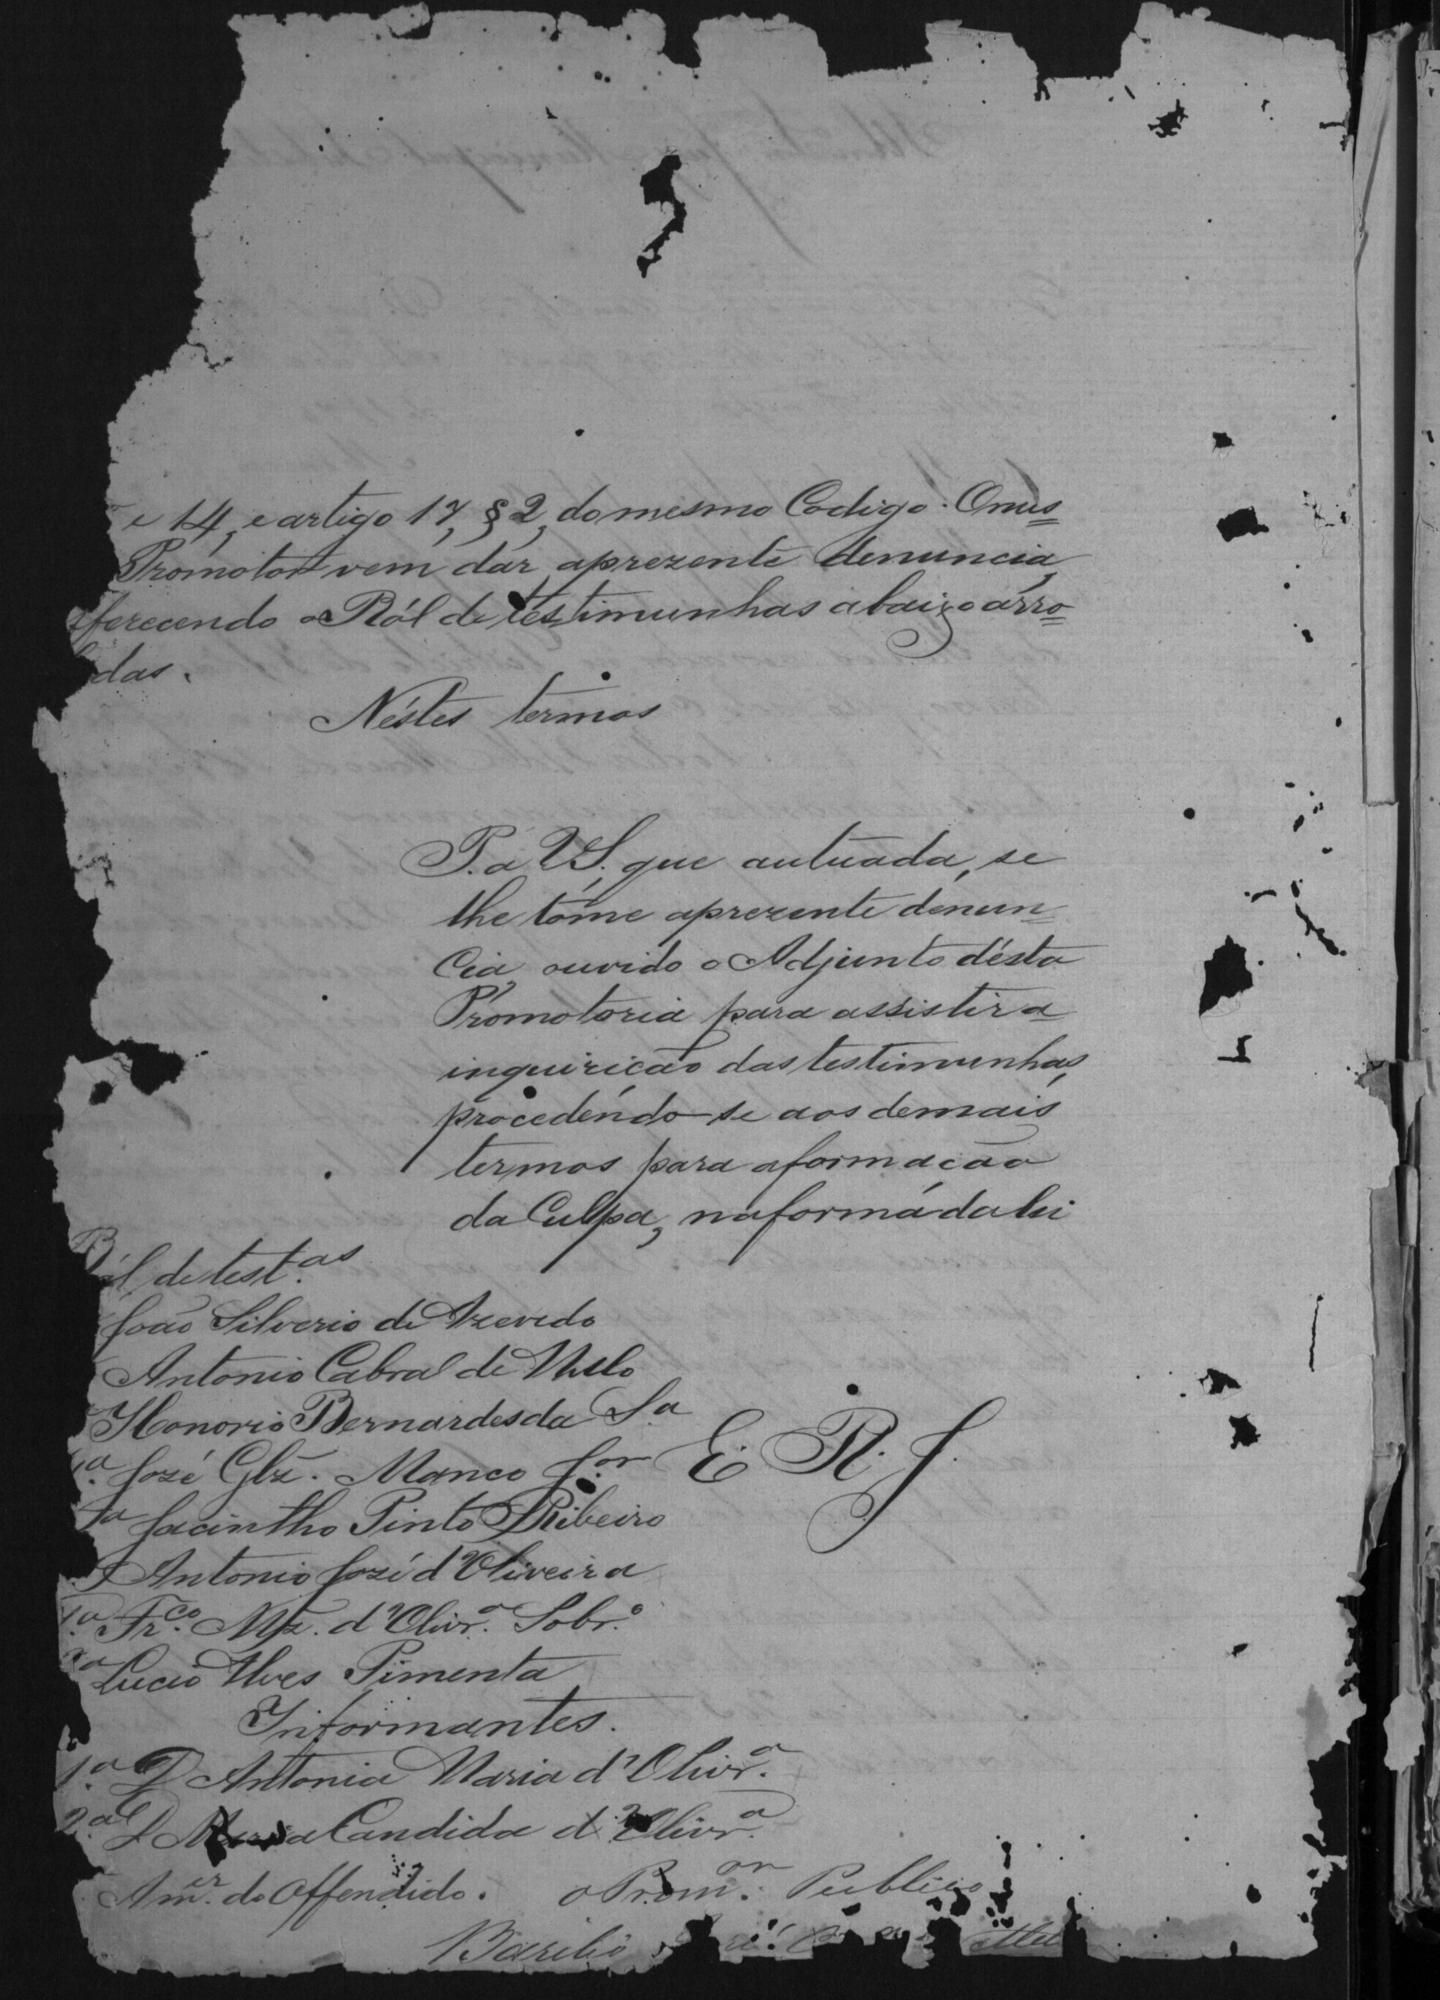 e 14, e artigo 17, § 2, do mesmo Codigo. O mes=
Promotor vem dar aprezente denuncia,
offerecendo o Ról de testimunhas abaixo arro=
ladas.
Néstes termos
P. a V. S. que autuada, se
lhe tóme aprezente denun=
cia, ouvido o Adjunto désta
Promotoria para assistir a
inquirição das testimunhas,
procedendo-se aos demais
termos para a formação
da Culpa, na forma da lei
Ról de test.as
João Silverio de Azevedo
Antonio Cabral de Mello
Honorio Bernardes da S.a
José Glz. Manco J.or
E. R. J.
Jacintho Pinto Ribeiro
Antonio José d'Oliveira
Fr.co Mz. d'Olivr.a Sobr.o
Lucio Alves Pimenta
Informantes.
1.a D Antonia Maria d'Olivr.a
2.a D Maria Candida d'Olivr.a
A m.er do Offendido.
o Prom.or Publico
Bazilio